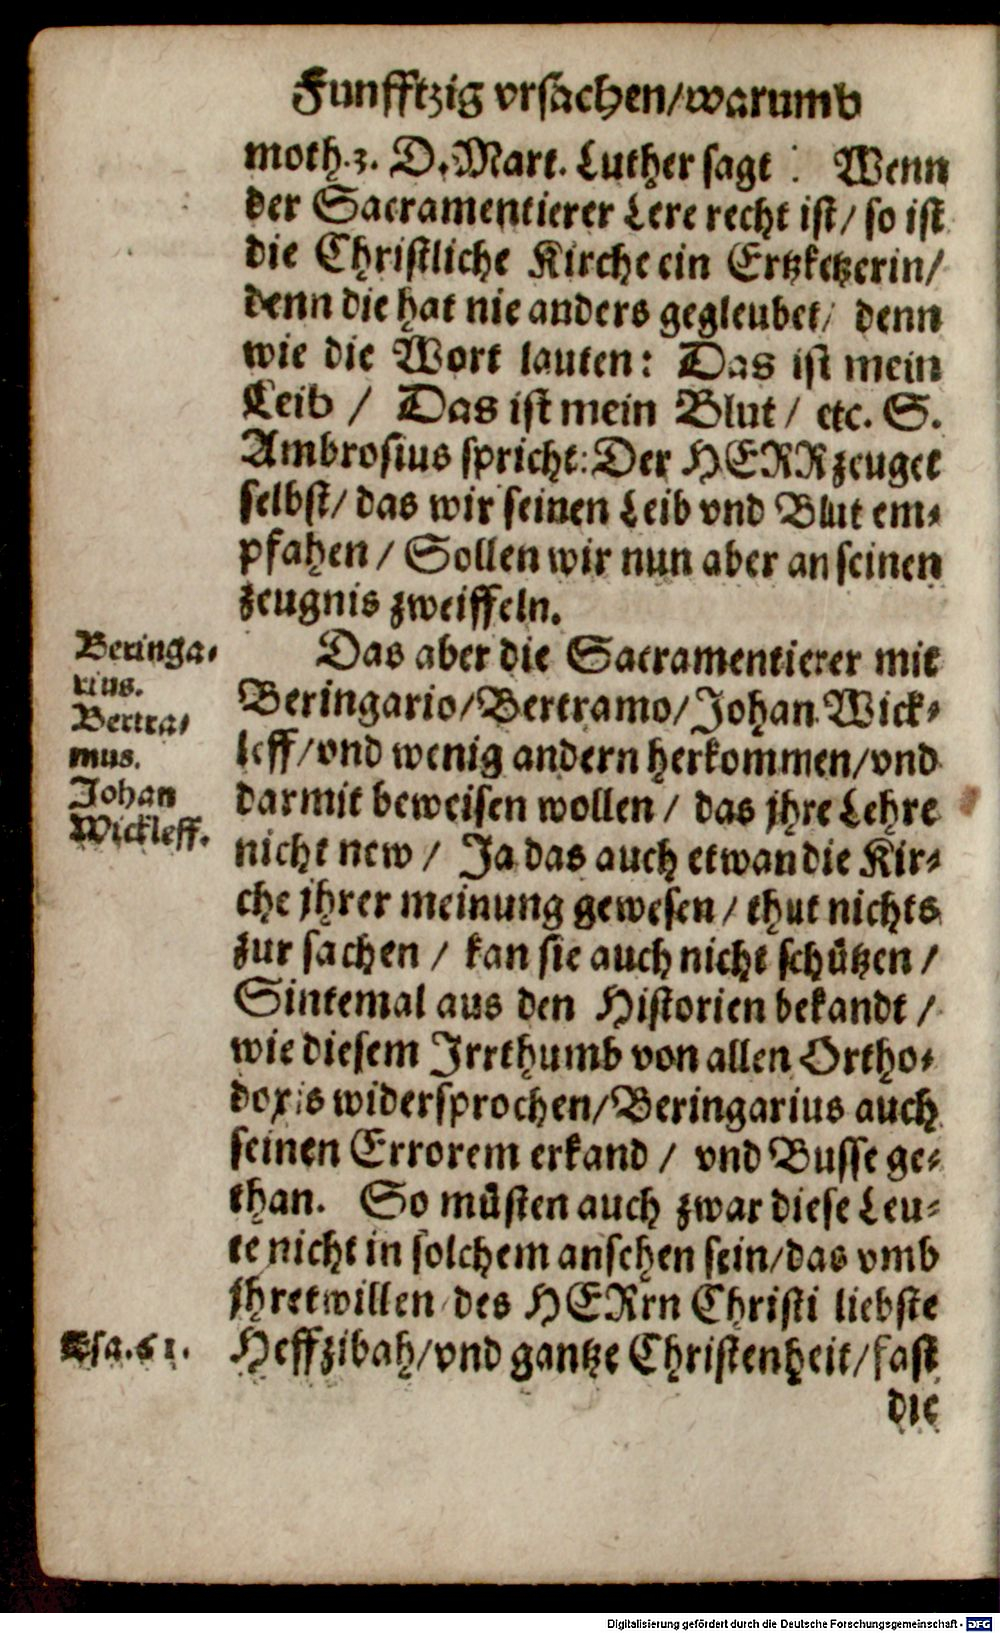 Funfftzig vrsachen/warumb
moth.3. D. Mart. Luther sagt : Wenn
der Sacramentierer Lere recht ist/ so ist
die Christliche Kirche ein Ertzketzerin/
denn die hat nie anders gegleubet/ denn
wie die Wort lauten: Das ist mein
Leib / Das ist mein Blut/ etc. S.
Ambrosius spricht: Der HERR zeuget
selbst/ das wir seinen Leib vnd Blut em-
pfahen / Sollen wir nun aber an seinen
zeugnis zweiffeln.
Das aber die Sacramentierer mit
Beringario/Bertramo/Johan Wick-
leff/vnd wenig andern herkommen/vnd
darmit beweisen wollen / das jhre Lehre
nicht new / Ja das auch etwan die Kir-
che jhrer meinung gewesen / thut nichts
zur sachen / kan sie auch nicht schützen /
Sintemal aus den Historien bekandt /
wie diesem Irrthumb von allen Ortho-
doxis widersprochen/Beringarius auch
seinen Errorem erkand / vnd Busse ge-
than. So müsten auch zwar diese Leu-
te nicht in solchem ansehen sein/das vmb
jhret willen des HERrn Christi liebste
Heffzibah/vnd gantze Christenheit/fast
die
Beringa-
rius.
Bertra-
mus.
Johan
Wickleff.
Esa.61.
Digitalisierung gefördert durch die Deutsche Forschungsgemeinschaft - DFG